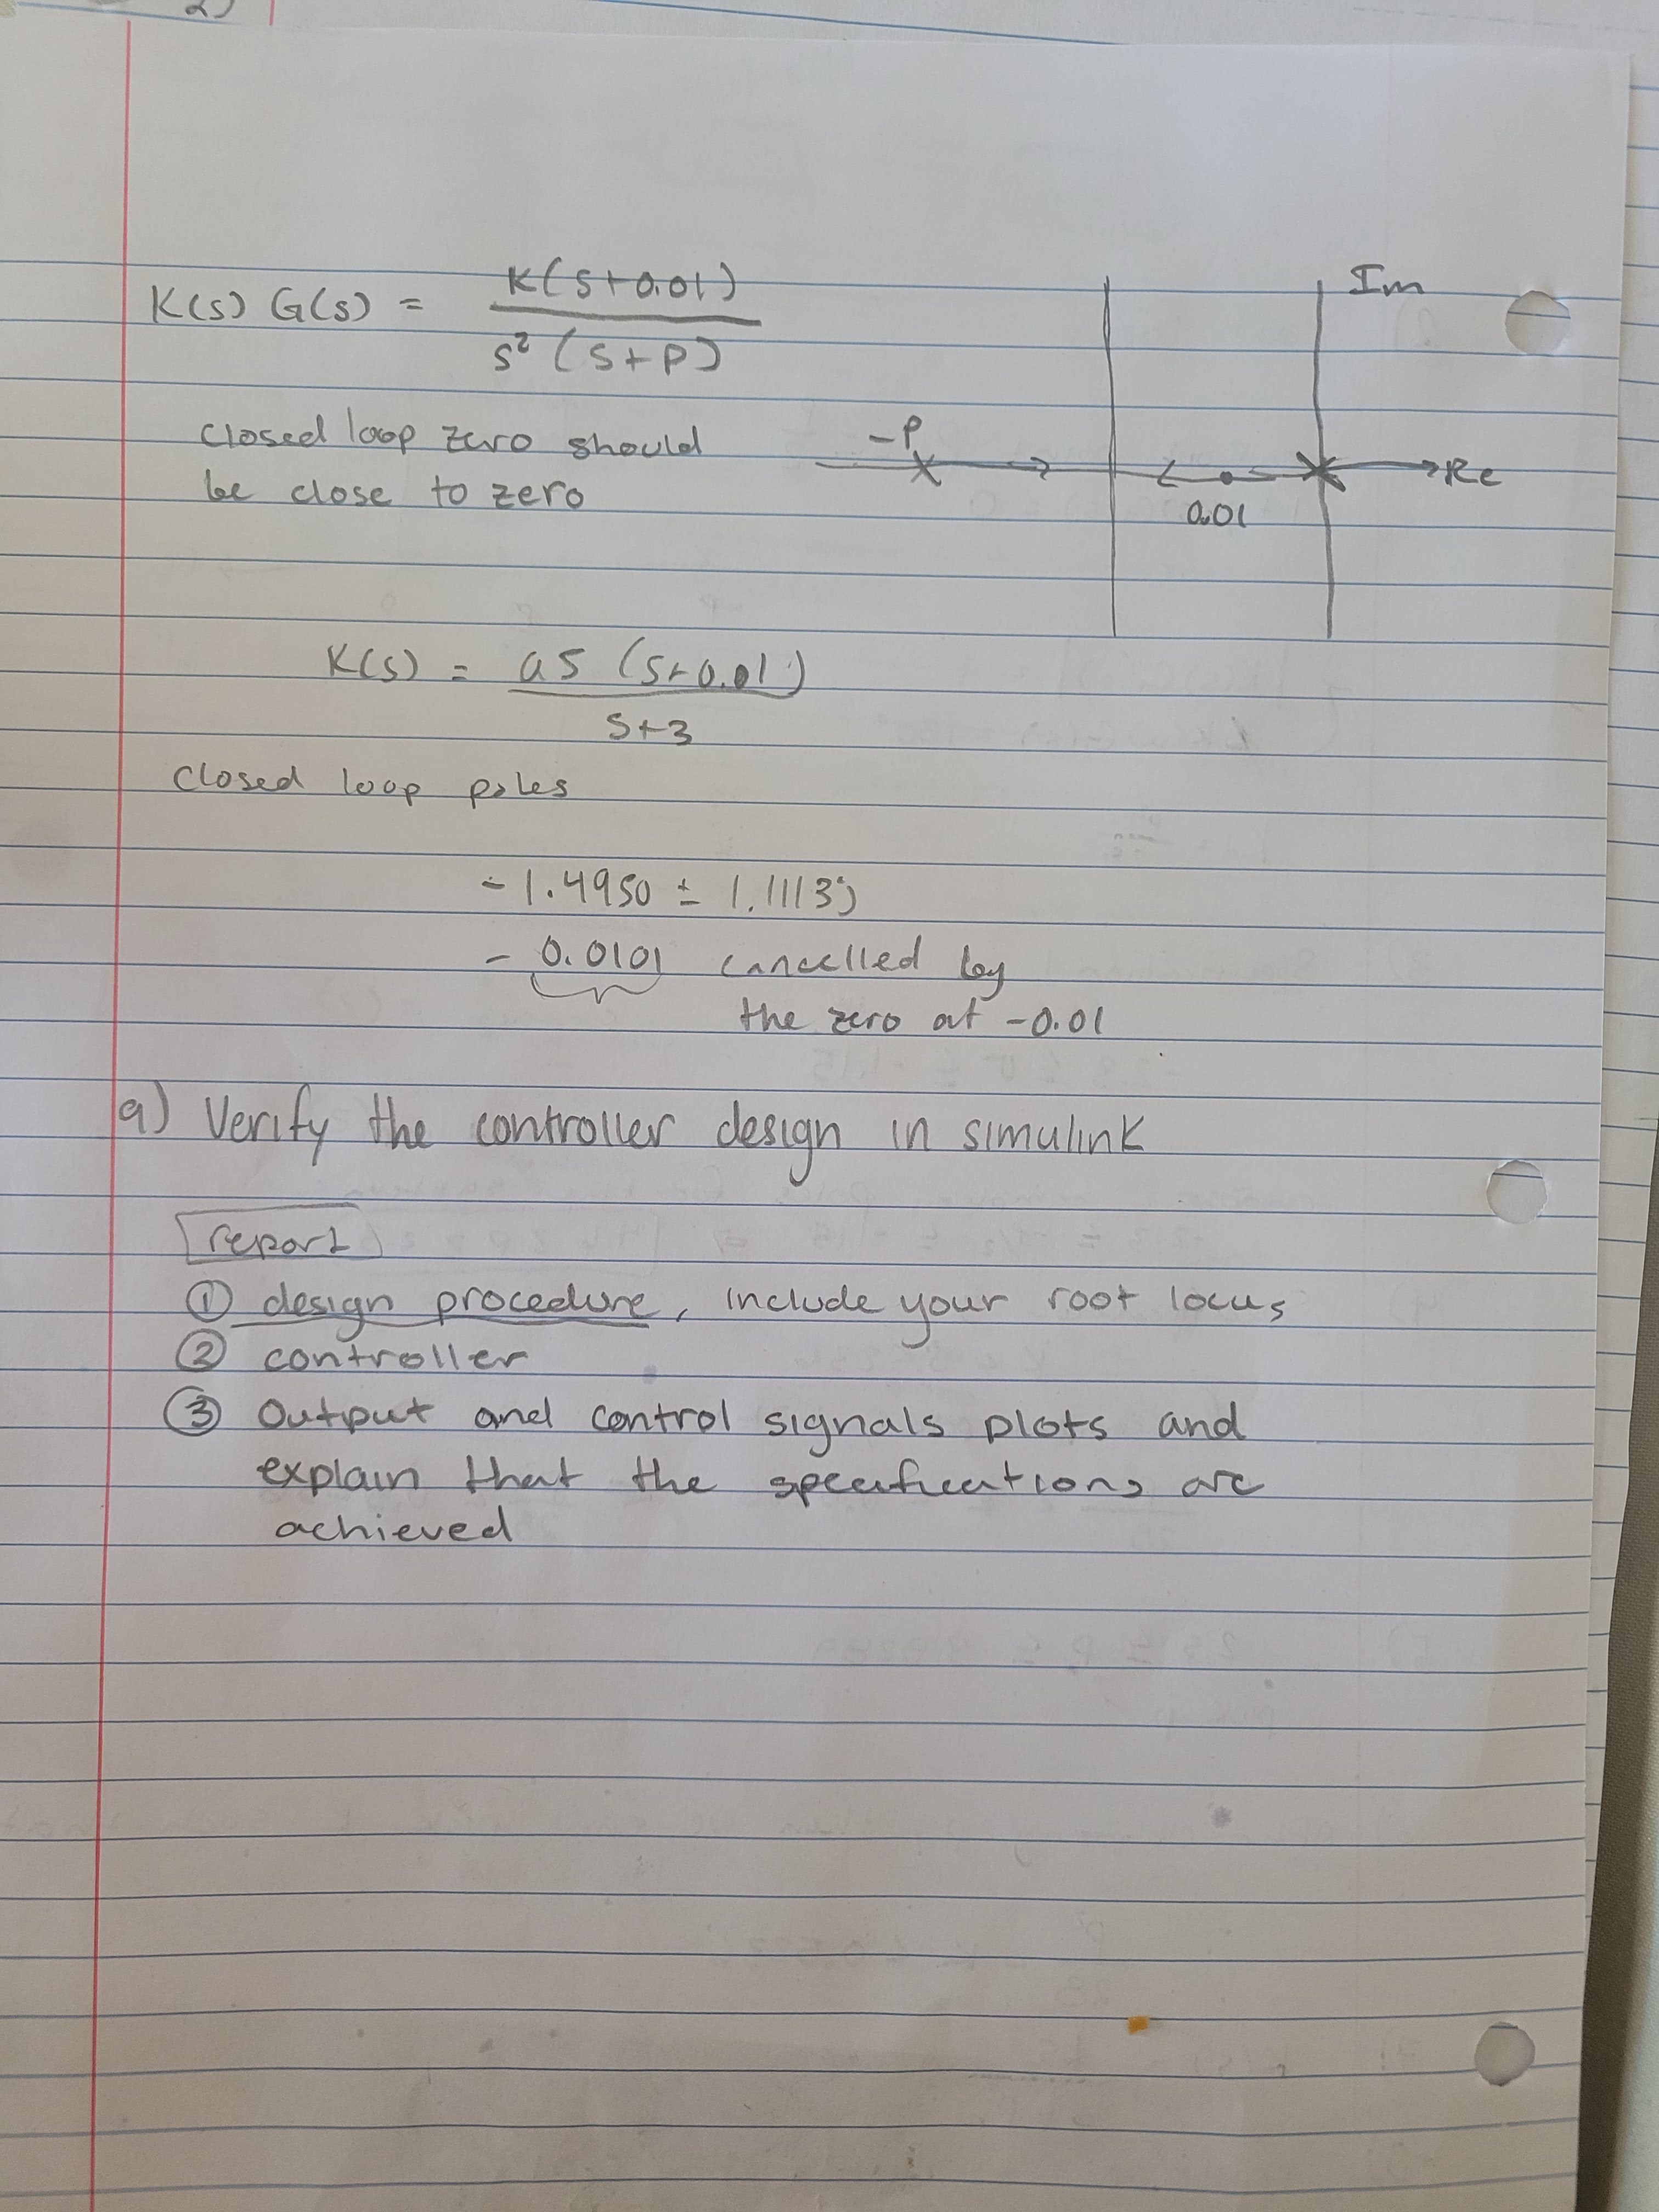 2)
K(s) G(s) = K(s+0.01)
s² (s+P)
Im
closed loop zero should
be close to zero
-P
Re
0.01
K(s) = a5 (s+0.01)
s+3
closed loop poles
-1.4950 ± 1.1113j
- 0.0101 cancelled by
the zero at -0.01
a) Verify the controller design in simulink
report
① design procedure, include your root locus
② controller
③ Output and control signals plots and
explain that the specifications are
achieved